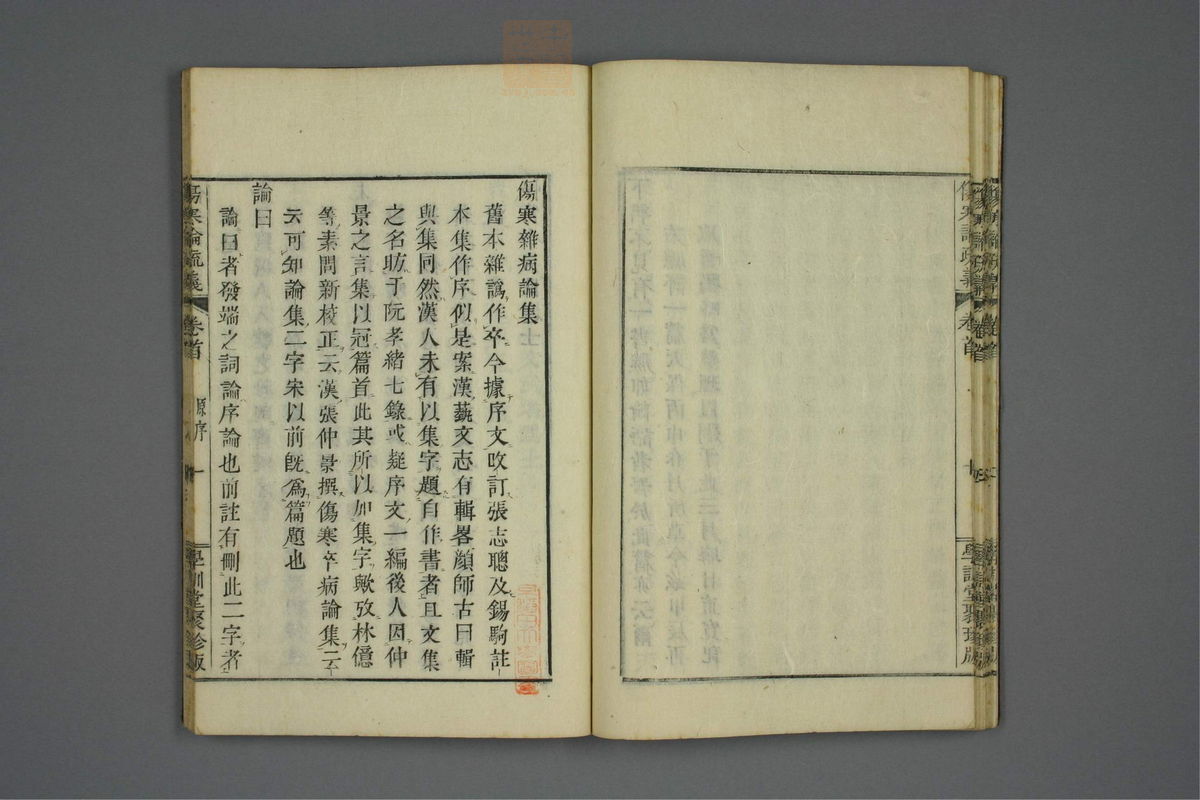 傷寒論疏義
卷首
學訓堂聚珍版
傷寒雜病論集
舊本雜譌作卒今據序文攷訂張志聰及錫駒註
本集作序似是案漢藝文志有輯畧顏師古曰輯
與集同然漢人未有以集字題自作書者且文集
之名昉于阮孝緒七錄或疑序文一編後人因仲
景之言集以冠篇首此其所以加集字歟攷林億
等素問新校正云漢張仲景撰傷寒卒病論集云
云可知論集二字宋以前旣爲篇題也
論曰
論曰者發端之詞論序論也前註有刪此二字者
傷寒論疏義
卷首
原序
一
學訓堂聚珍版